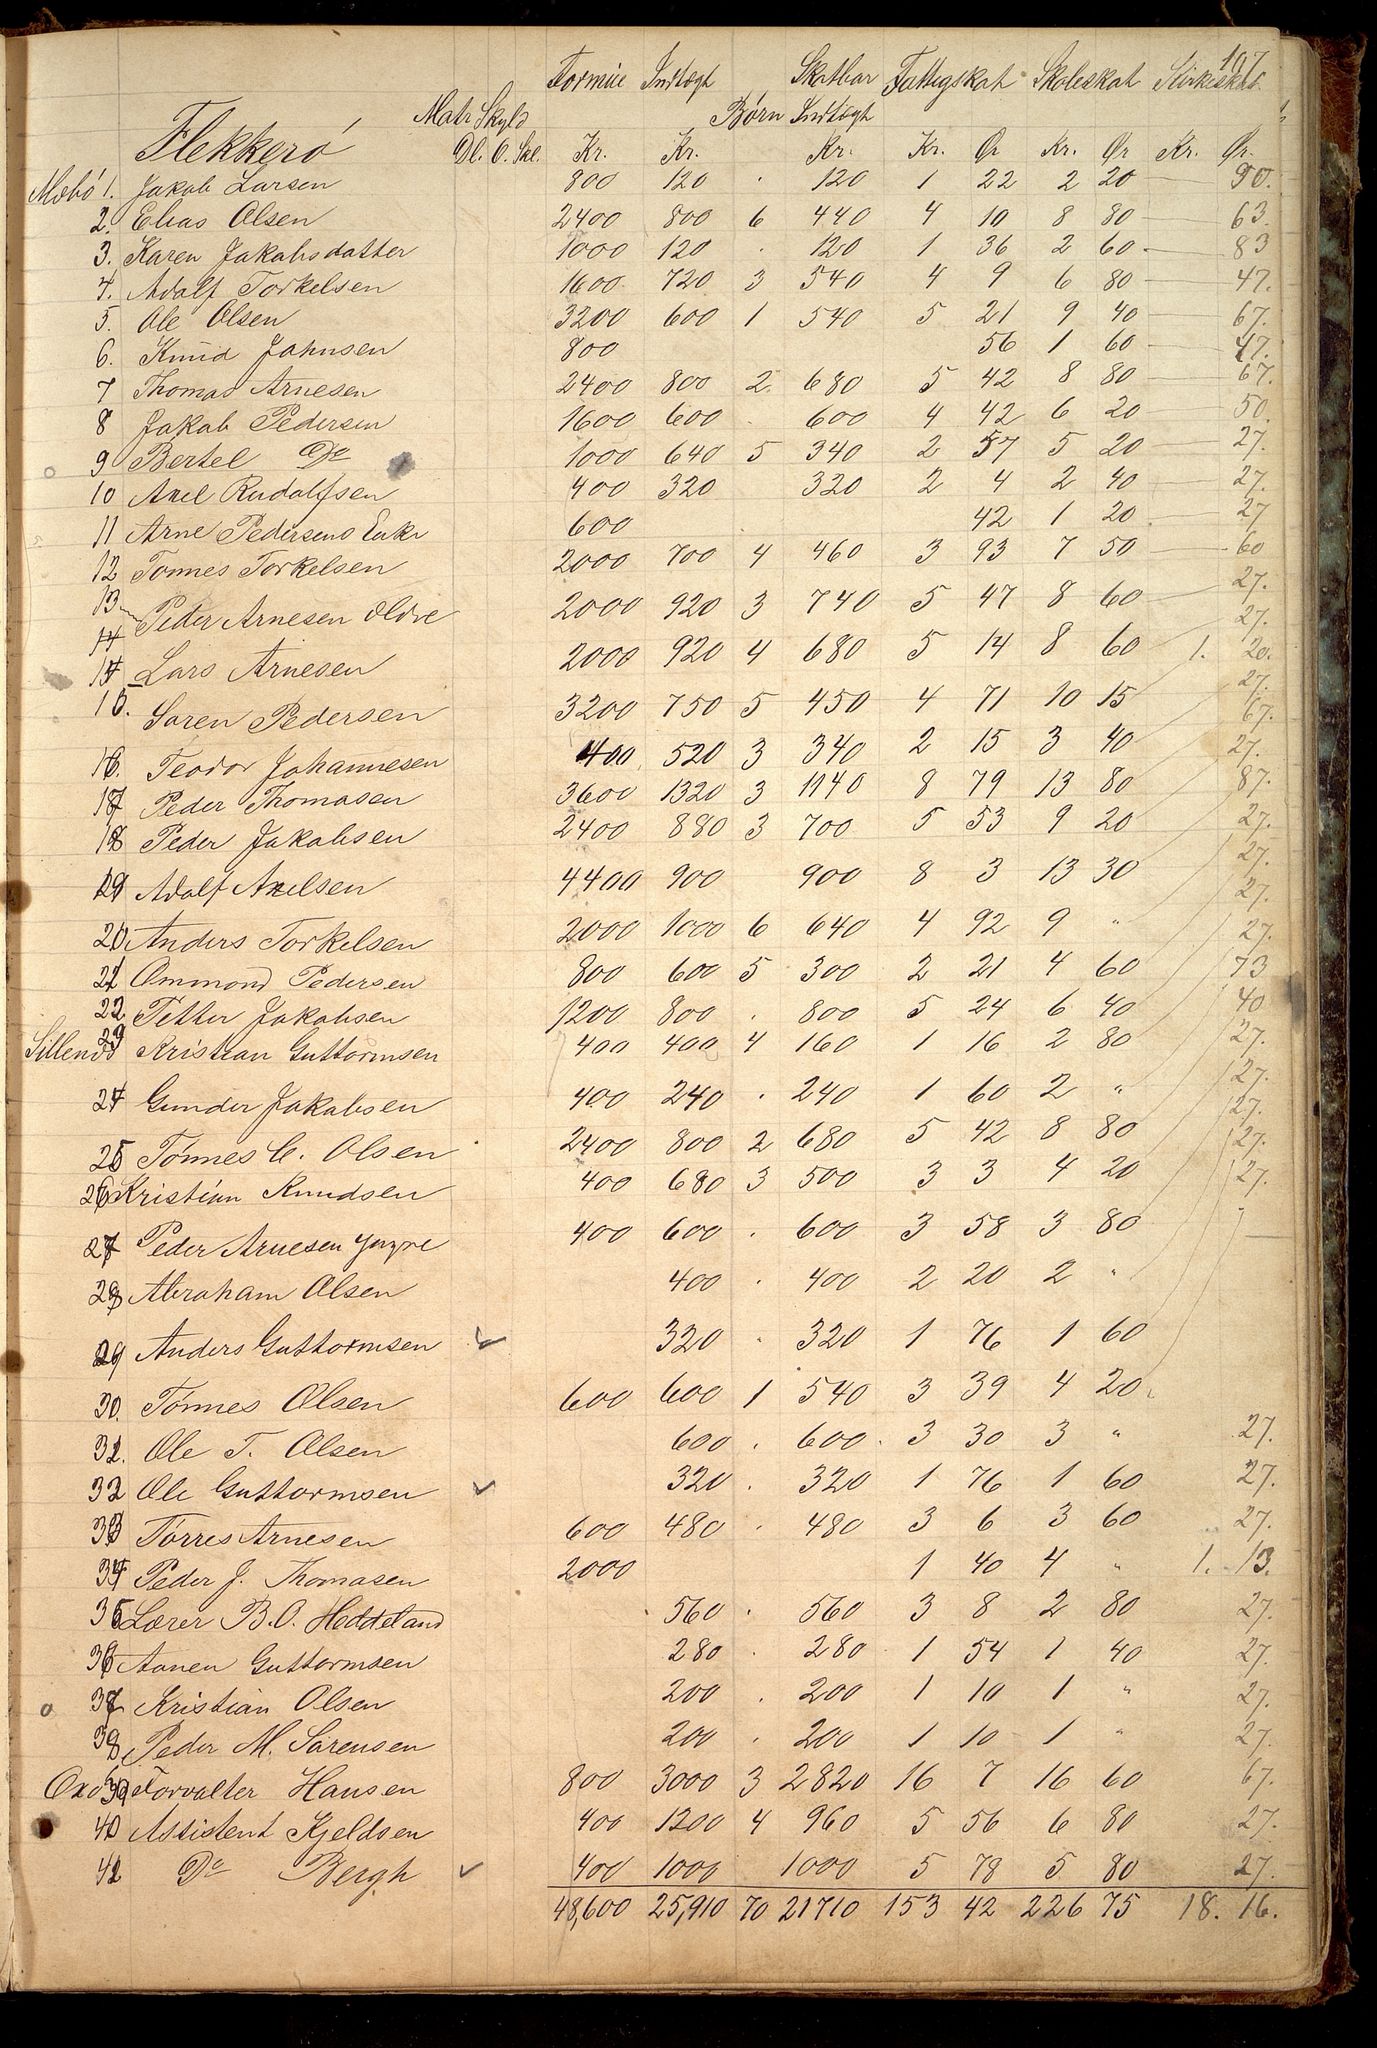 197
Formue Indtægt Skatbar Fattigskat Skoleskat Kirkeskat
Matr Skyld Børn Indtægt
Flekkerö Dl. O. Skl. Kr. Kr. Kr. Kr. Ør Kr. Ør Kr. Ør.
Mæbö 1. Jakob Larsen 800 120 . 120 1 22 2 20 — 90.
2. Elias Olsen 2400 800 6 440 4 10 8 80 — 63.
3. Karen Jakobsdatter 1000 120 . 120 1 36 2 60 — 83
4. Adolf Torkelsen 1600 720 3 540 4 9 6 80 — 47.
5. Ole Olsen 3200 600 1 540 5 21 9 40 — 67.
6. Knud Johnsen 800 56 1 60 — 47.
7 Thomas Arnesen 2400 800 2 680 5 42 8 80 — 67.
8 Jakob Pedersen 1600 600 . 600 4 42 6 20 — 50.
9 Bertel Do 1000 640 5 340 2 57 5 20 — 27.
10 Axel Rudolfsen 400 320 320 2 4 2 40 — 27.
11 Arne Pedersens Enke 600 42 1 20 27
12 Tønnes Torkelsen 2000 700 4 460 3 93 7 50 — 60
13 Peder Arnesen ældre 2000 920 3 740 5 47 8 60 27.
14 27.
Lars Arnesen 2000 920 4 680 5 14 8 60 1. 20.
15 Søren Pedersen 3200 750 5 450 4 71 10 15 27.
67.
16. Teodor Johannesen 400 520 3 340 2 15 3 40 27.
17 Peder Thomasen 3600 1320 3 1140 8 79 13 80 87.
18 Peder Jakobsen 2400 880 3 700 5 53 9 20 27.
19 Adolf Axelsen 4400 900 900 8 3 13 30 27.
27.
20 Anders Torkelsen 2000 1000 6 640 4 92 9 " 27.
21 Ommond Pedersen 800 600 5 300 2 21 4 60 73
22 Petter Jakobsen 1200 800 . 800 5 24 6 40 40
23 Kristian Guttormsen 400 400 4 160 1 16 2 80 27.
24 Gunder Jakobsen 400 240 . 240 1 60 2 " 27.
27.
25 Tønnes C. Olsen 2400 800 2 680 5 42 8 80 27.
26 Kristian Knudsen 400 680 3 500 3 3 4 20 27.
27 Peder Arnesen yngre 400 600 . 600 3 58 3 80 "
28 Abraham Olsen 400 . 400 2 20 2 "
29 Anders Guttormsen 320 . 320 1 76 1 60
30. Tønnes Olsen 600 600 1 540 3 39 4 20
31. Ole T. Olsen 600 . 600 3 30 3 " 27.
32 Ole Guttormsen 320 . 320 1 76 1 60 27.
33 Torres Arnesen 600 480 . 480 3 6 3 60 27.
34 Peder J. Thomasen 2000 1 40 4 " 1. 13.
35 Lærer B. O. Heddeland 560 . 560 3 8 2 80 27.
36 Aanen Guttormsen 280 . 280 1 54 1 40 27.
37 Kristian Olsen 200 . 200 1 10 1 " 27.
38 Peder M. Sørensen 200 . 200 1 10 1 " 27.
Oxö 39 Forvalter Hansen 800 3000 3 2820 16 7 16 60 67.
40 Assistent Kjeldsen 400 1200 4 960 5 56 6 80 27.
41 Do Bergh 400 1000 1000 5 78 5 80 27.
48,600 25,910 70 21710 153 42 226 75 18. 16.